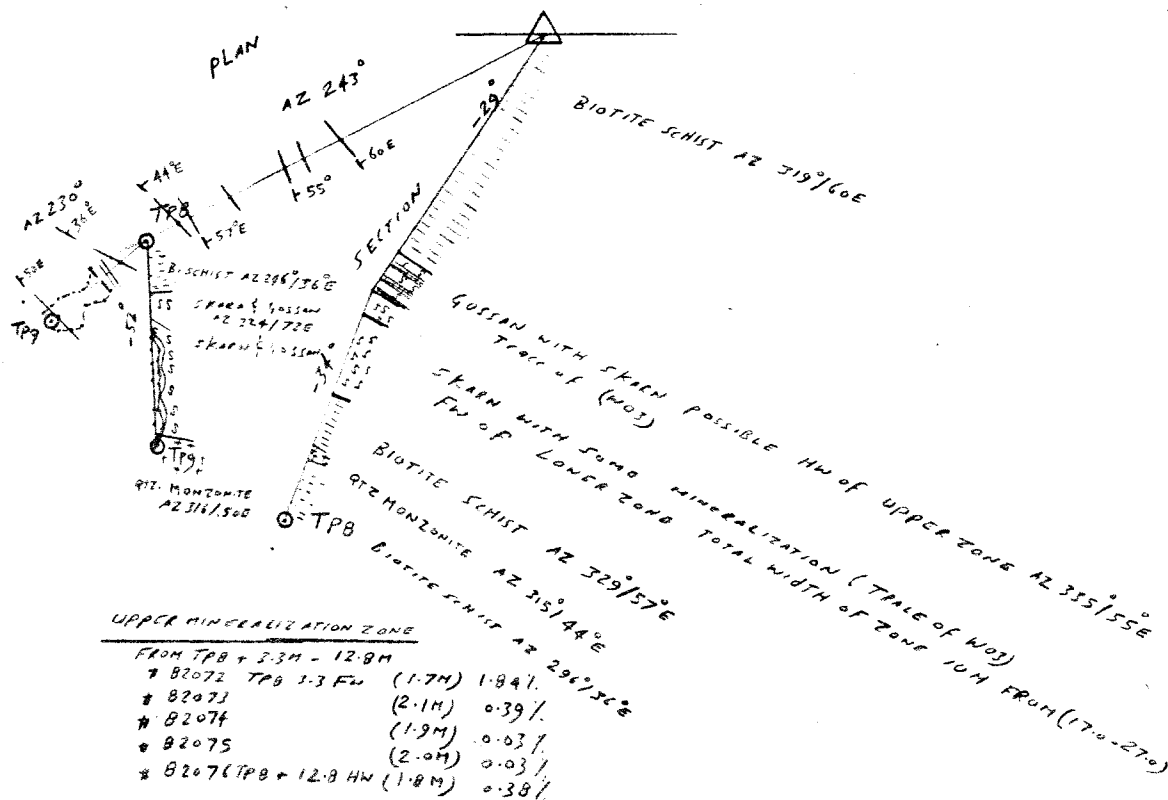 PLAN
AZ 243°
-29°
BIOTITE SCHIST AZ 319°/60E
60E
55°
44°E
TP8
57°E
AZ 230°
36°E
50E
TP9
SECTION
BI SCHIST AZ 296°/36°E
SKARN & GOSSAN
AZ 324/72E
SKARN & GOSSAN
-52°
TP9
QTZ. MONZONITE
AZ 316/50E
GOSSAN WITH SKARN POSSIBLE HW OF UPPER ZONE AZ 335°/55°E
TRACE OF (WO3)
SKARN WITH SOME MINERALIZATION (TRACE OF WO3)
FW OF LOWER ZONE TOTAL WIDTH OF ZONE 10M FROM (17.0-27.0)
BIOTITE SCHIST AZ 329°/57°E
QTZ MONZONITE AZ 315°/44°E
BIOTITE SCHIST AZ 296°/36°E
TP8
UPPER MINERALIZATION ZONE
FROM TP8 + 3.3M - 12.8M
# 82072 TP8 3.3 FW (1.7M) 1.84%
# 82073 (2.1M) 0.39%
# 82074 (1.9M) 0.03%
# 82075 (2.0M) 0.03%
# 82076 TP8 + 12.8 HW (1.8M) 0.38%